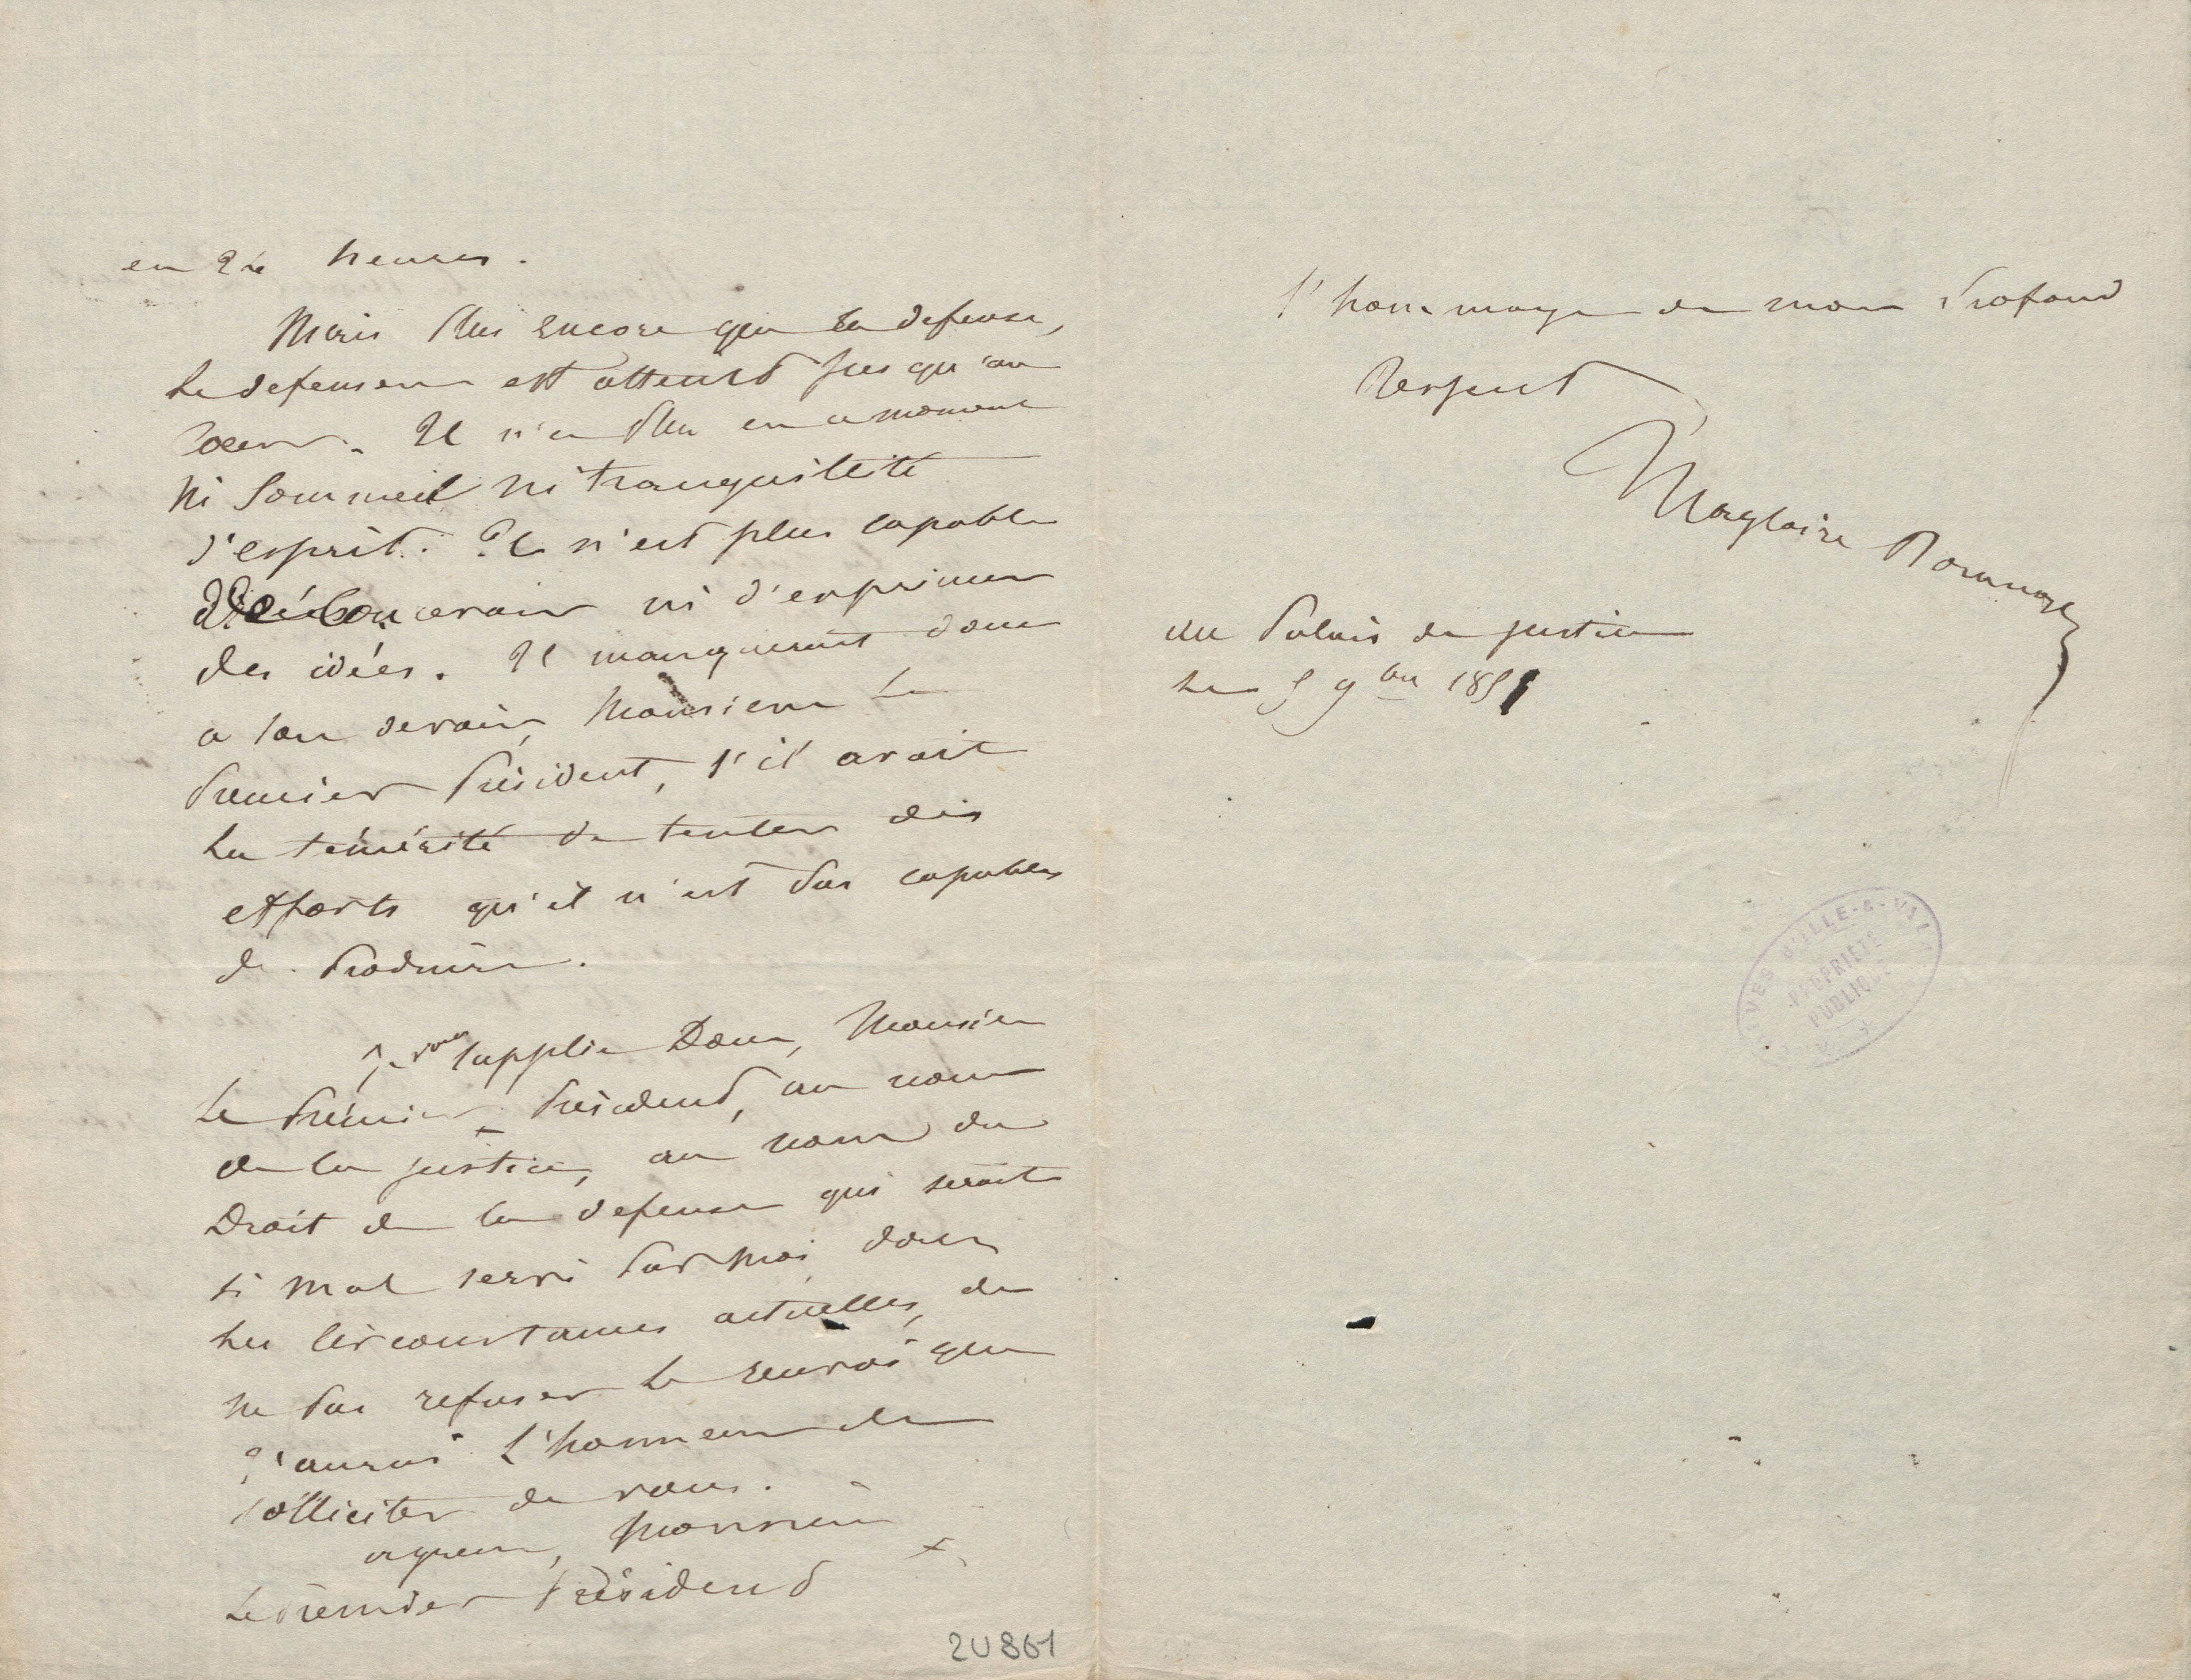 en 24 heures.
Mais plus encore que la defense,
le defenseur est atteint jusqu'au
coeur. Il n'a plus en ce moment
ni sommeil ni tranquillité
d'esprit. Il n'est plus capable
ni d'exprimer
des idées. Il manquerait donc
a son devoir, Monsieur le
Premier Président, s'il avait
la témérité de tenter des
efforts qu'il n'est pas capable
de produire.
Je vous supplie donc, Monsieur
le Prémier Président, au nom
de la justice, au nom du
Droit de la defense qui serait
si mal servi par moi dans
les circonstances actuelles, de
ne pas refuser le renvoi que
j'aurais l'honneur de
solliciter de vous.
agreez, Monsieur
le Premier Président
2U861
l'hommage de mon profond
respect
Magloire Dorange
au Palais de justice
le 5 9bre 1851
ARCHIVES D'ILLE-&-VILAINE
PROPRIÉTÉ
PUBLIQUE